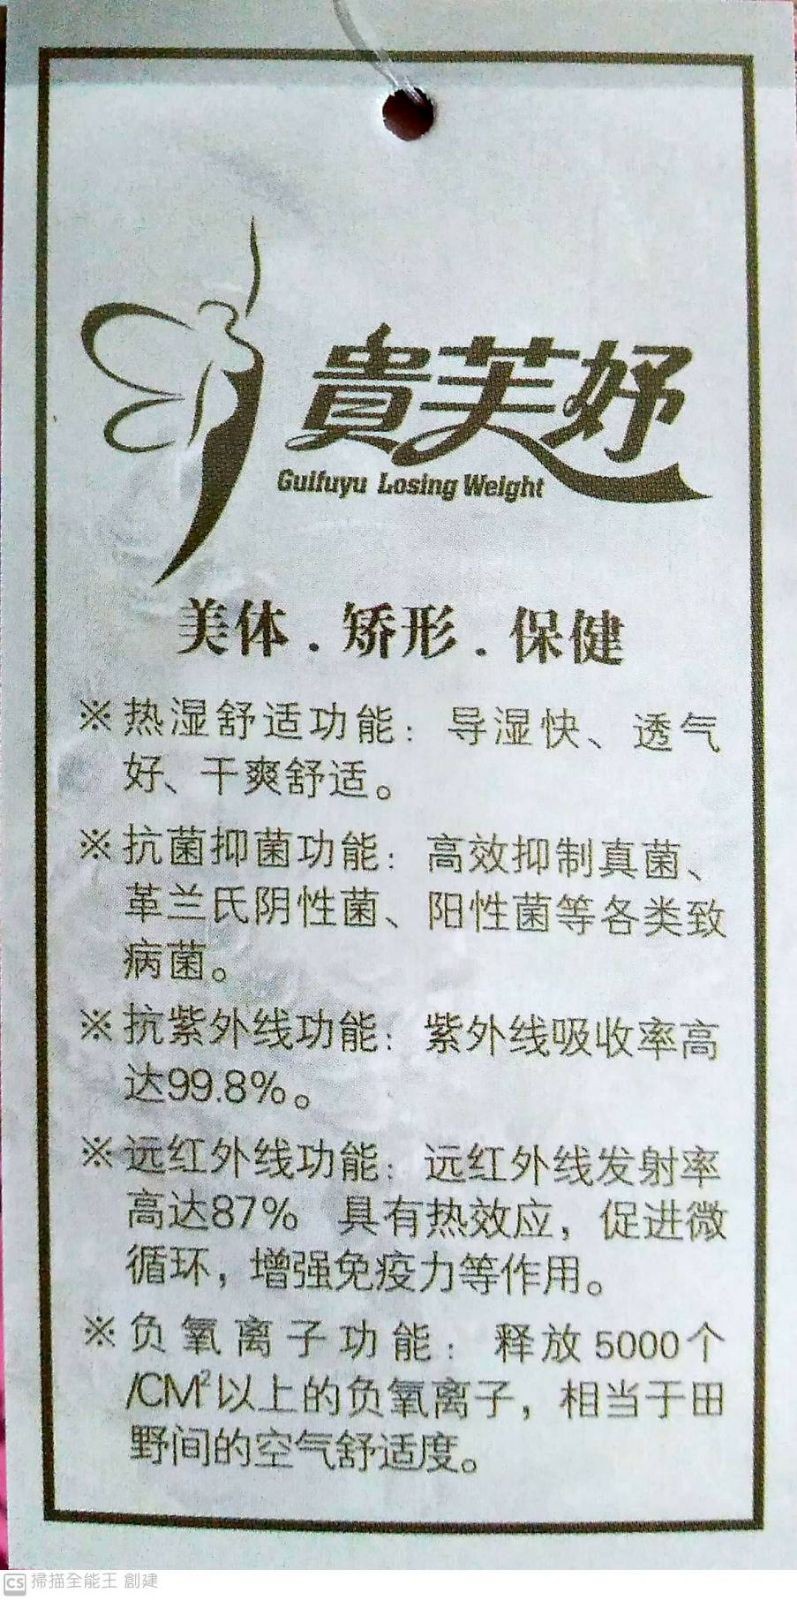 貴芙妤
Guifuyu Losing Weight
美体.矫形.保健
※热湿舒适功能：导湿快、透气
好、干爽舒适。
※抗菌抑菌功能：高效抑制真菌、
革兰氏阴性菌、阳性菌等各类致
病菌。
※抗紫外线功能：紫外线吸收率高
达99.8%。
※远红外线功能：远红外线发射率
高达87% 具有热效应，促进微
循环，增强免疫力等作用。
※负氧离子功能：释放5000个
/CM²以上的负氧离子，相当于田
野间的空气舒适度。
CS 掃描全能王 創建